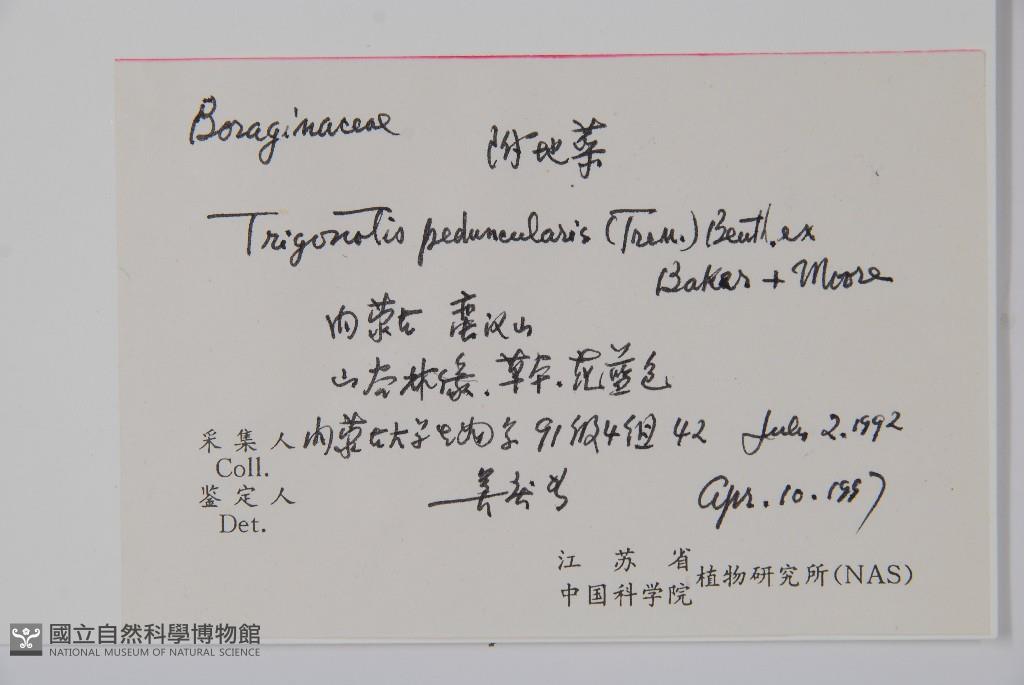 Boraginaceae
附地菜
Trigonotis peduncularis (Trem.) Benth. ex
Baker + Moore
内蒙古 蛮汉山
山谷林缘、草本、花蓝色
采集人 内蒙古大学生物系 91级4组 42 July 2. 1992
Coll.
鉴定人 Apr. 10. 1997
Det.
江苏省
中国科学院 植物研究所(NAS)
國立自然科學博物館
NATIONAL MUSEUM OF NATURAL SCIENCE